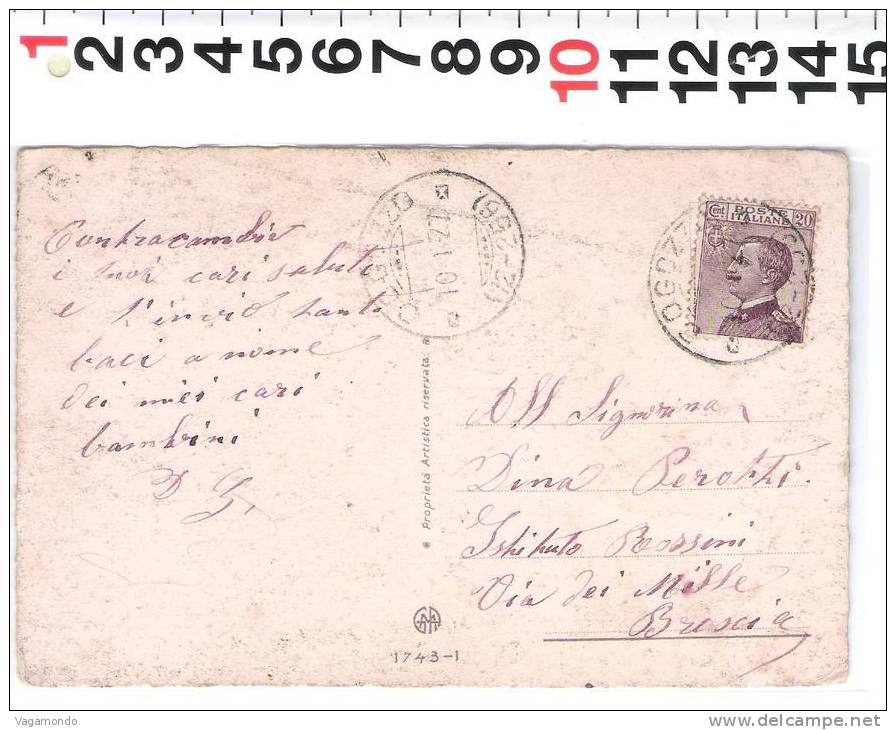 1 2 3 4 5 6 7 8 9 10 11 12 13 14 15
BOGOZZO
17.1.27.10
(37-258)
Cent POSTE ITALIANE 20
Contracambio
i suoi cari saluti
e l'invio tanti
baci a nome
dei miei cari
bambini
D G.
Proprietà Artistica riservata
All Signorina
Dina Perotti.
Istituto Rossini
Via dei Mille
Brescia
1743-1
Vagamondo
www.delcampe.net